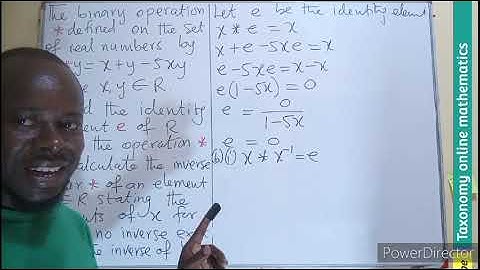 The binary operation
* defined on the set
of real numbers by
y = x + y - 5xy
x, y ∈ R
the identity
e of R
the operation *
calculate the inverse
* of an element
R stating the
of x for
no inverse
inverse of
Let e be the identity element
x * e = x
x + e - 5xe = x
e - 5xe = x - x
e(1 - 5x) = 0
e = 0/(1 - 5x)
e = 0
(b)(i) x * x⁻¹ = e
Taxonomy online mathematics
PowerDirector